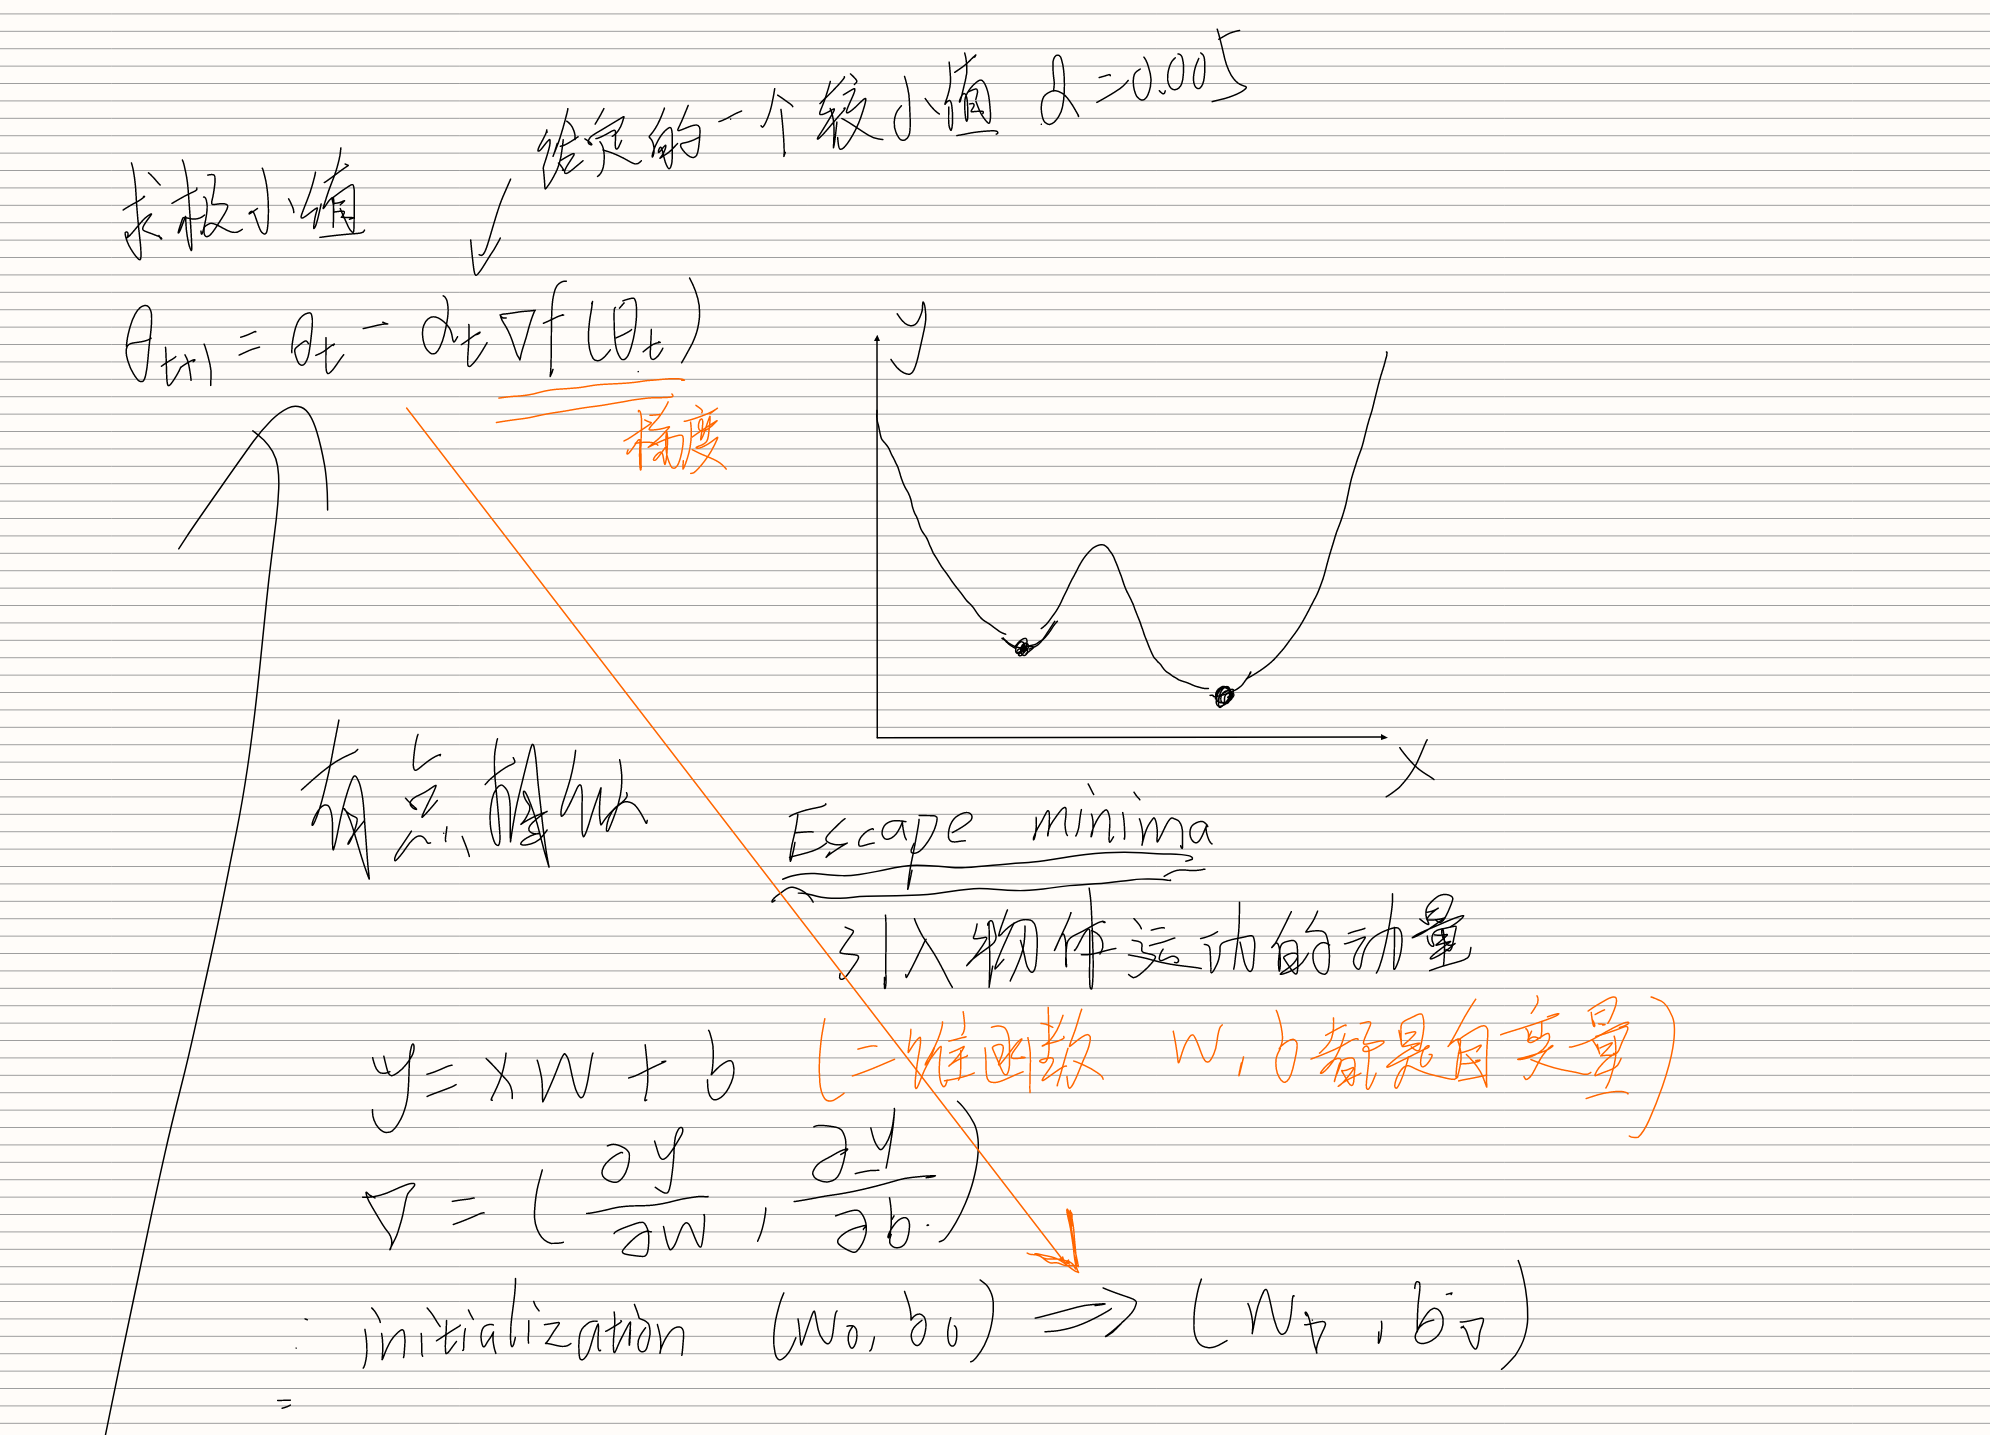 给定的一个较小值 α=0.005
求极小值
θt+1 = θt - αt ∇f(θt)
梯度
y
x
有点相似
Escape minima
引入物体运动的动量
y = xw + b (二维函数 w,b都是自变量)
∇ = (∂y/∂w, ∂y/∂b)
initialization (w0, b0) ⇒ (w▽, b▽)
=